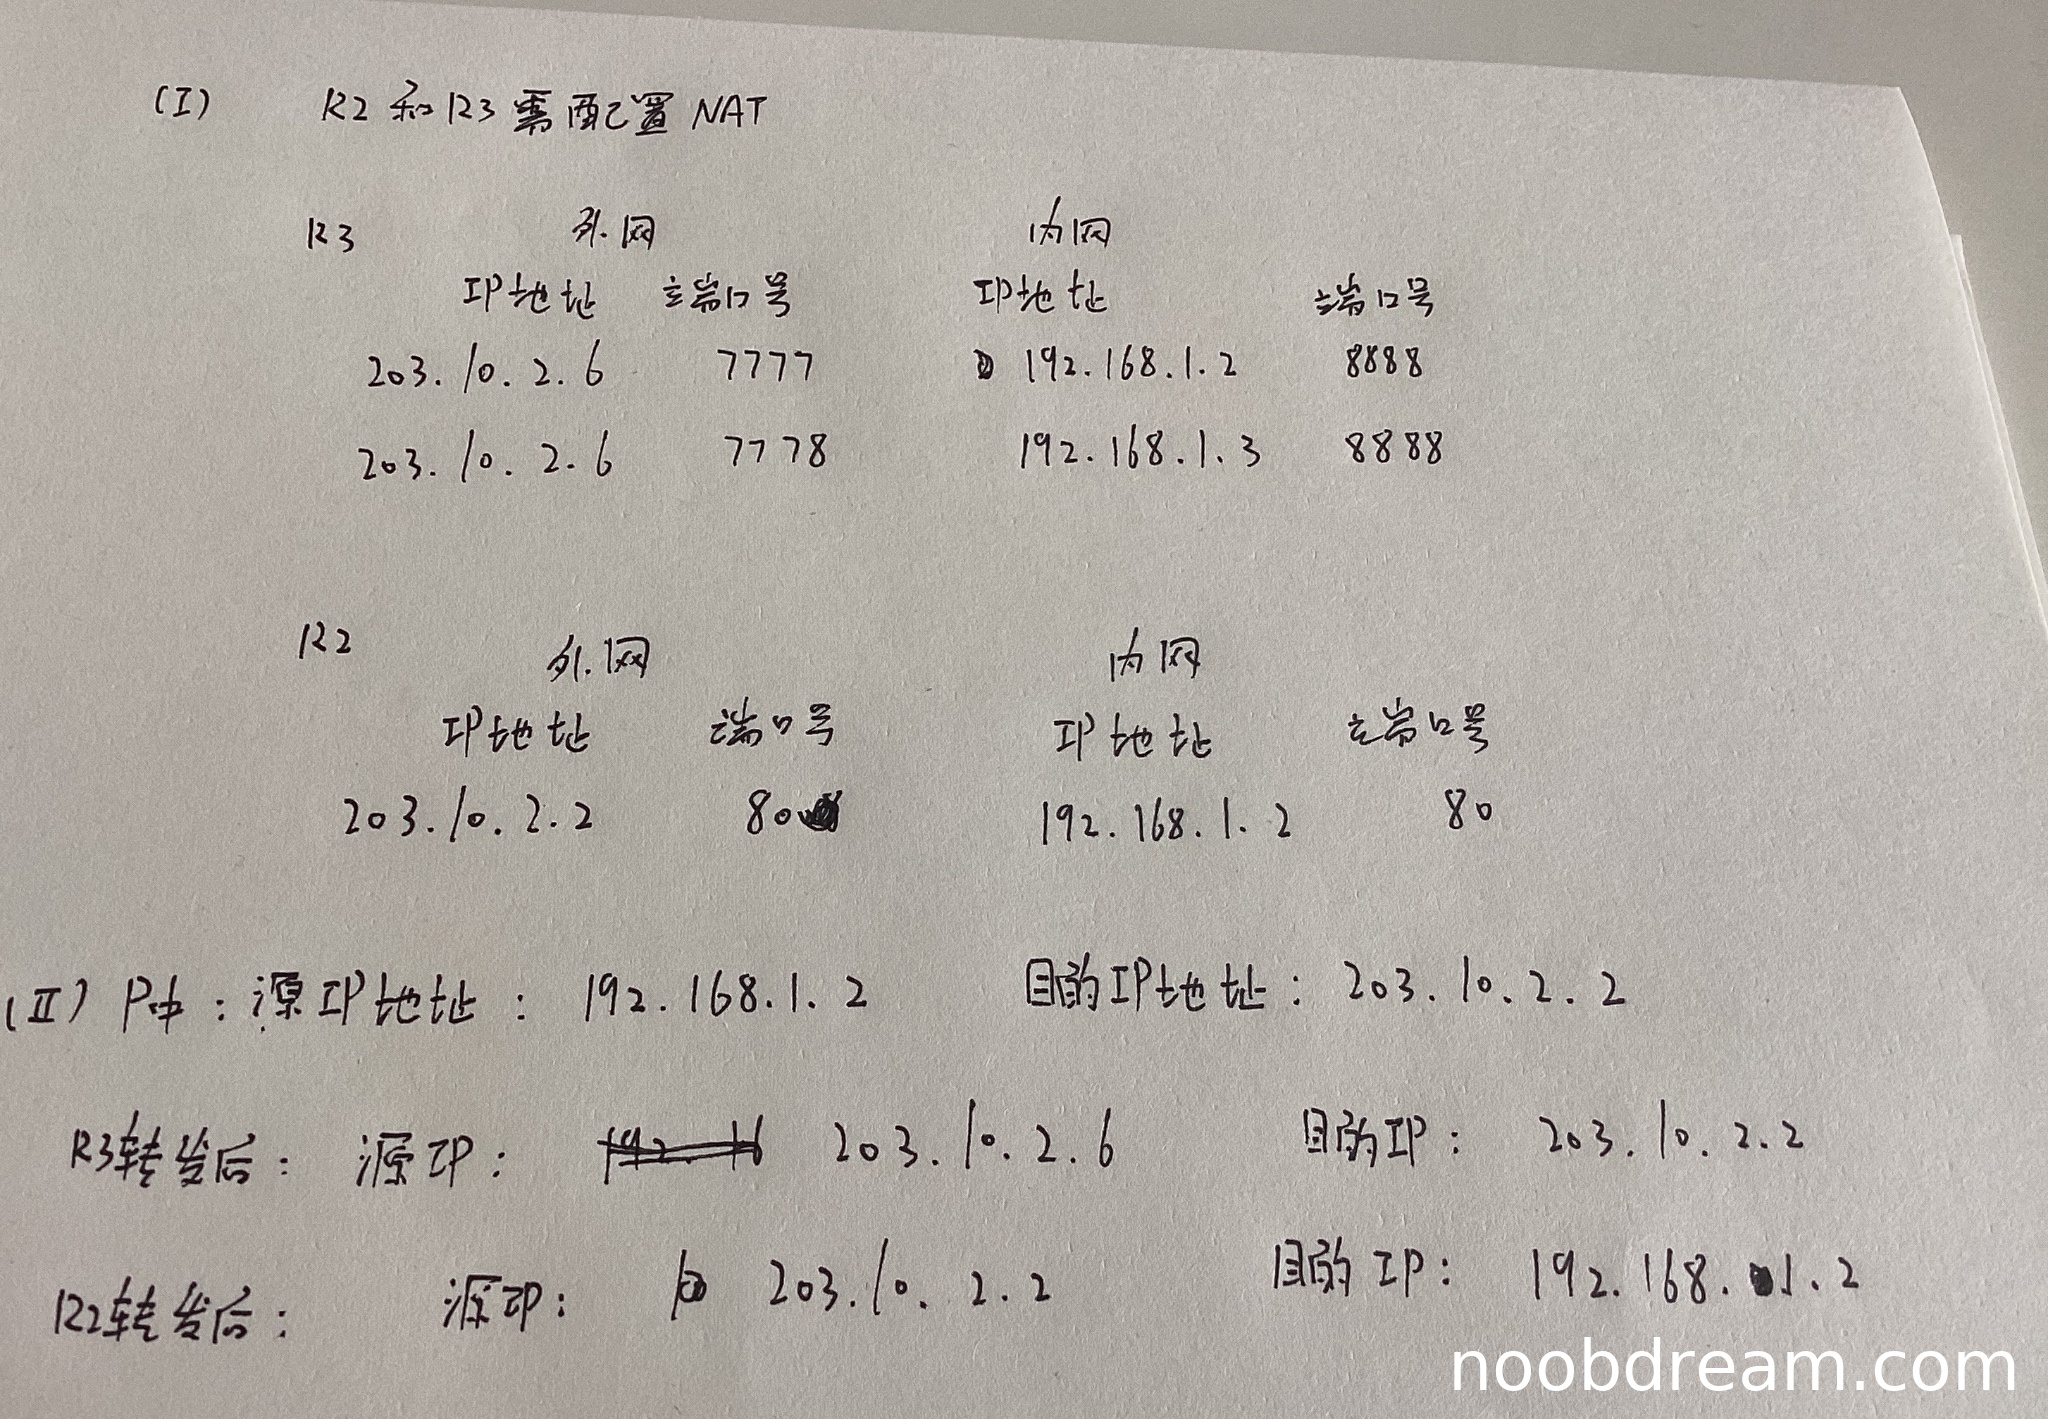 (I) R2和R3需配置NAT
R3 外网 内网
IP地址 端口号 IP地址 端口号
203.10.2.6 7777 192.168.1.2 8888
203.10.2.6 7778 192.168.1.3 8888
R2 外网 内网
IP地址 端口号 IP地址 端口号
203.10.2.2 80 192.168.1.2 80
(II) P中:源IP地址: 192.168.1.2 目的IP地址: 203.10.2.2
R3转发后: 源IP: 203.10.2.6 目的IP: 203.10.2.2
R2转发后: 源IP: 203.10.2.2 目的IP: 192.168.1.2
noobdream.com